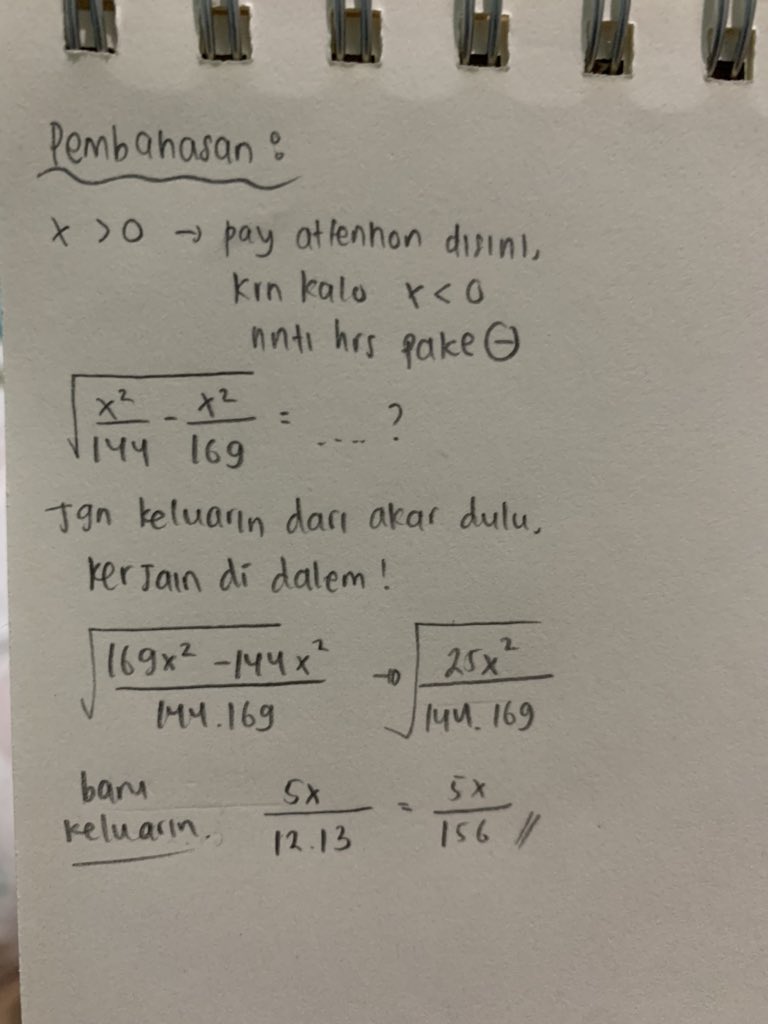 Pembahasan :
x > 0 → pay attention disini,
krn kalo x < 0
nnti hrs pake ⊖
√(x²/144 - x²/169) = .... ?
Jgn keluarin dari akar dulu,
kerjain di dalem !
√((169x² - 144x²)/(144.169)) → √(25x²/(144.169))
baru
keluarin. 5x/(12.13) = 5x/156 //